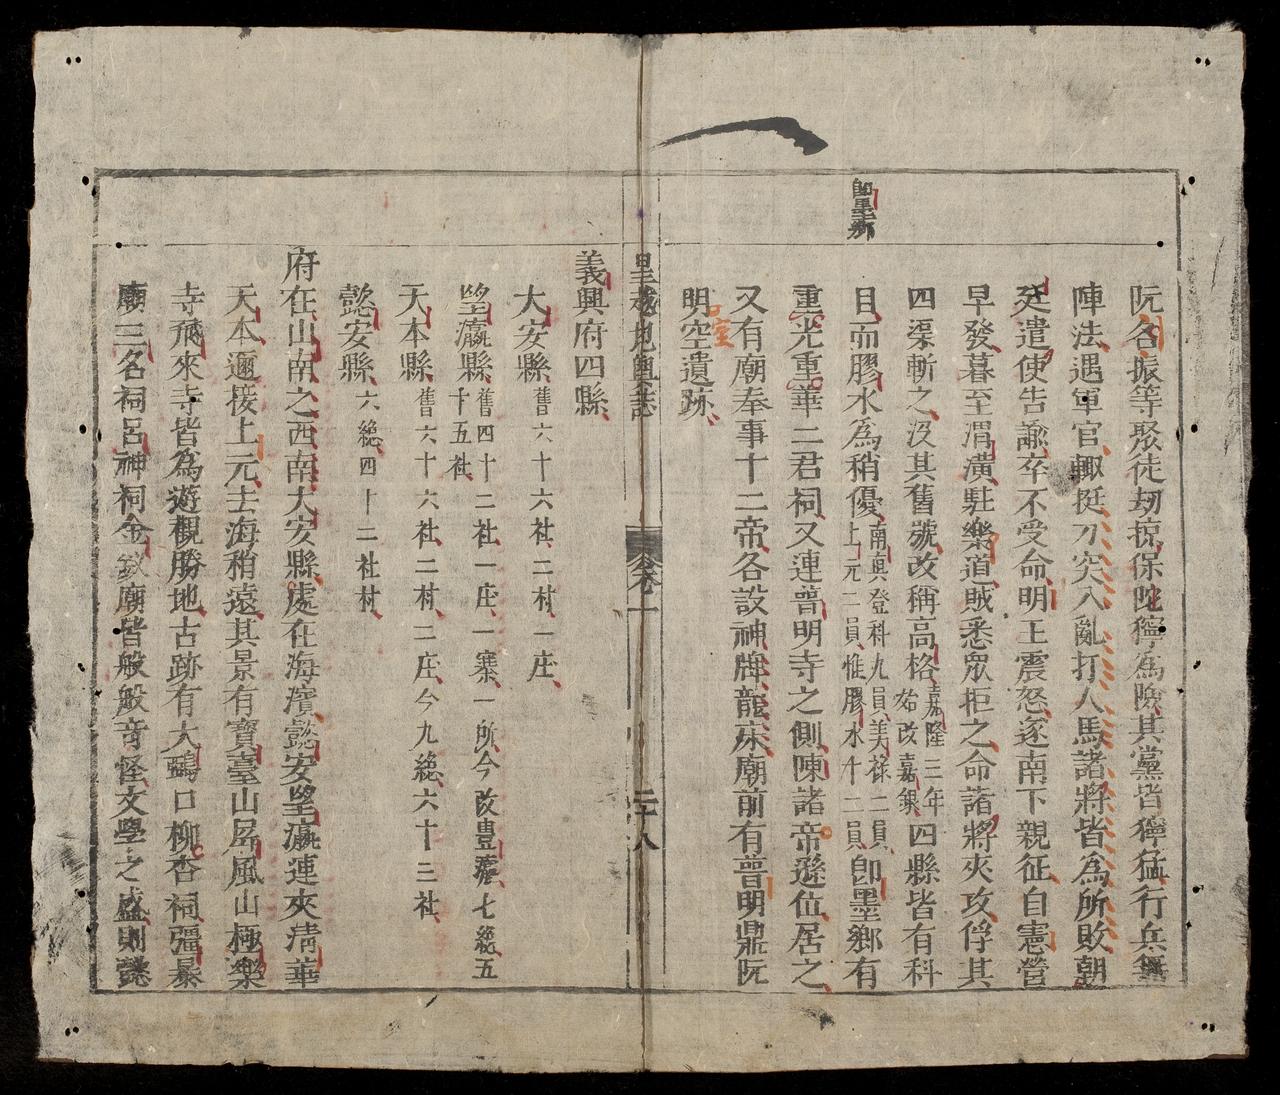 卽墨鄉
阮各振等聚徒刼掠保陀獰為險其黨皆獰猛行兵無
陣法遇軍官輙挺刀突入亂打人馬諸將皆為所敗朝
廷遣使告諭卒不受命明王震怒遂南下親征自憲營
早發暮至渭潢駐樂道賊悉眾拒之命諸將夾攻俘其
四渠斬之没其舊號改稱高格嘉隆三年
又改嘉銀四縣皆有科
目而膠水為稍優南真登科九員美祿二員
上元二員惟膠水十二員卽墨鄉有
重光重華二君祠又連普明寺之側陳諸帝遜位居之
又有廟奉事十二帝各設神牌龍床廟前有普明鼎阮
明空遺跡
空
皇越地輿誌
卷一
二十八
義興府四縣
大安縣舊六十六社二村一庄
望瀛縣舊四十二社一庄一寨一所今改豊瀛七總五
十五社
天本縣舊六十六社二村二庄今九總六十三社
懿安縣六總四十二社村
府在山南之西南大安縣處在海濱懿安望瀛連夾清華
天本邇接上元去海稍遠其景有寶臺山屏風山極樂
寺飛來寺皆為遊觀勝地古跡有大鵶口柳杏祠彊暴
廟三名祠呂神祠金釵廟皆般般奇怪文學之盛則懿